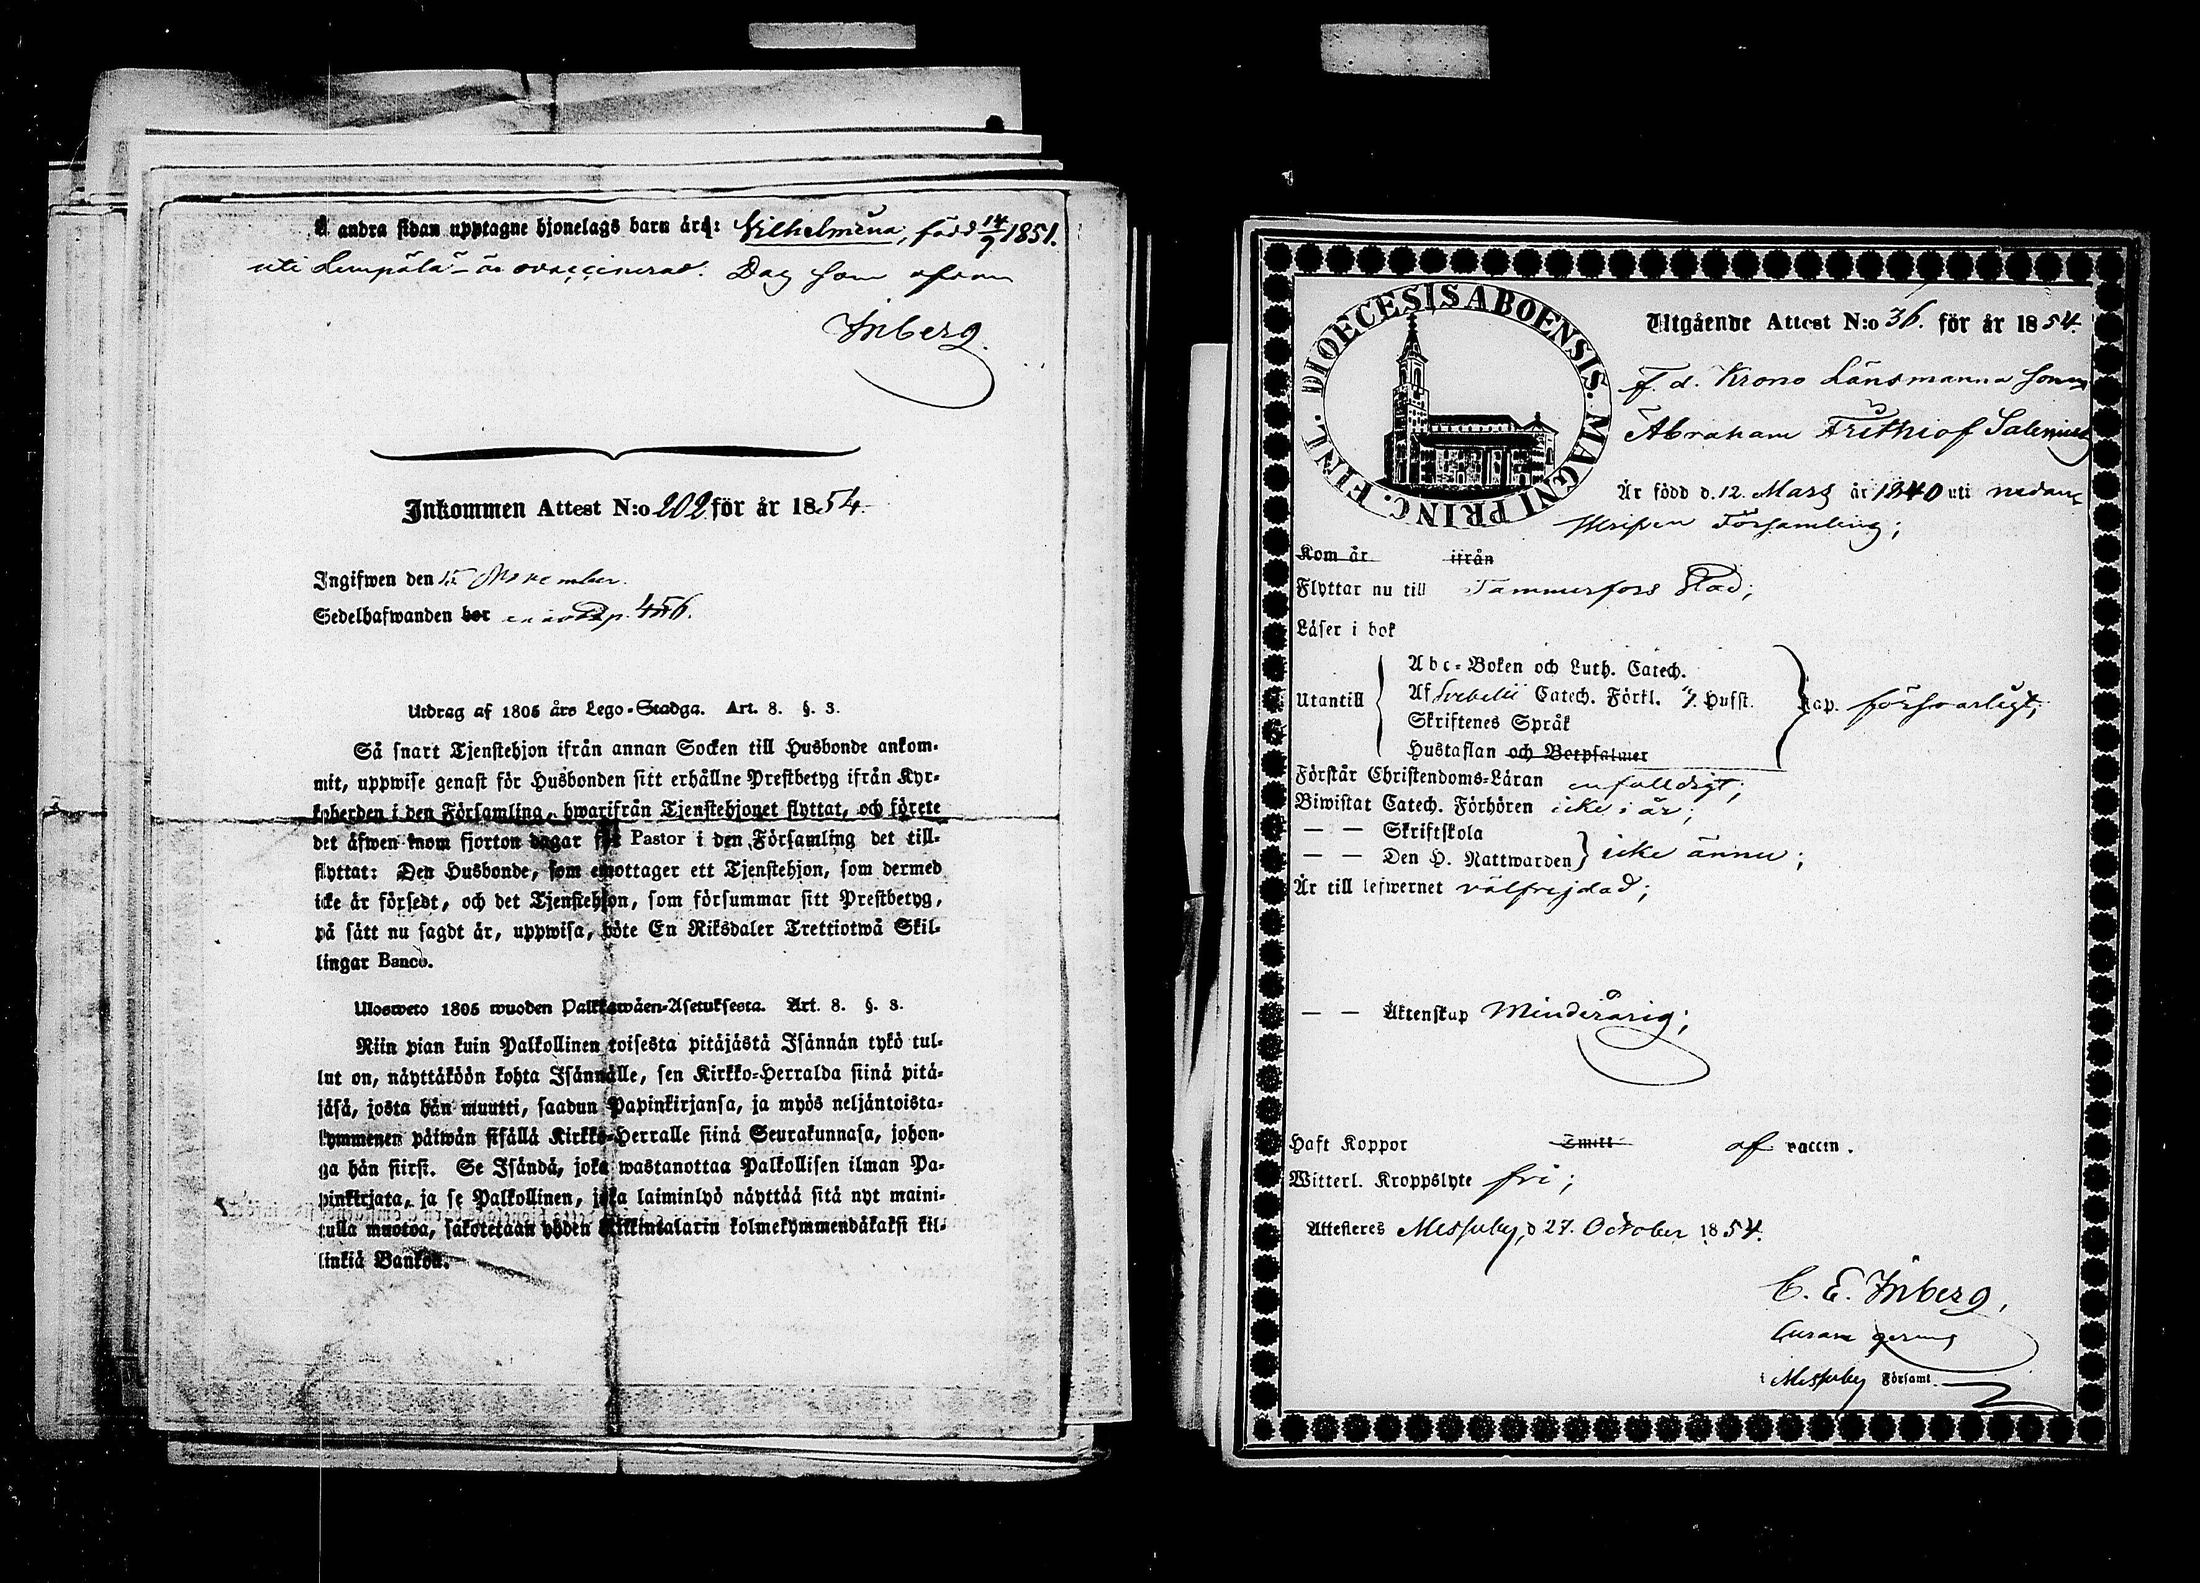 å andra sidan upptagne hjonelags barn är: Vilhelmina, född 14/9 1851.
uti Lempälä – är ovaccinerad. Dag som ofvan
Inberg.
Inkommen Attest N:o 202 för år 1854.
Ingifwen den 15 November.
Sedelhafwanden bor p. 456.
Utdrag af 1805 års Lego-Stadga. Art. 8. §. 3.
Så snart Tjenstehjon ifrån annan Socken till Husbonde ankom-
mit, uppwise genast för Husbonden sitt erhållne Prestbetyg ifrån Kyr-
koherden i den Församling, hwarifrån Tjenstehjonet flyttat, och förete
det äfwen inom fjorton dagar för Pastor i den Församling det till-
flyttat: Den Husbonde, som emottager ett Tjenstehjon, som dermed
icke är försedt, och det Tjenstehjon, som försummar sitt Prestbetyg,
på sätt nu sagdt är, uppwisa, böte En Riksdaler Trettiotwå Skil-
lingar Banco.
Ulosweto 1805 wuoden Palkkawäen-Asetuksesta. Art. 8. §. 3.
Niin pian kuin Palkollinen toisesta pitäjästä Isännän tykö tul-
lut on, näyttäköön kohta Isännälle, sen Kirkko-Herralda siinä pitä-
jäsä, josta hän muutti, saadun Papinkirjansa, ja myös neljäntoista-
kymmenen päiwän sisällä Kirkko-Herralle siinä Seurakunnasa, johon-
ga hän siirsi. Se Isändä, joka wastanottaa Palkollisen ilman Pa-
pinkirjata, ja se Palkollinen, joka laiminlyö näyttää sitä nyt maini-
tulla muotoa, sakotetaan yhden Riikintalarin kolmekymmendäkaksi kil-
linkiä Bankon.
FINL. DIOECESIS ABOENSIS. MAGNI PRINC.
Utgående Attest N:o 36. för år 1854.
F. d. Krono Länsmanna sonen
Abraham Frithiof Salenius
Är född d. 12. Mars år 1840 uti nedan-
skrifven Församling;
Kom år ifrån
Flyttar nu till Tammerfors Stad;
Läser i bok
Abc-Boken och Luth. Catech.
Utantill Af Svebelii Catech. Förkl. Hufst. kap. försvarligt;
Skriftenes Språk
Hustaflan och Botpsalmer
Förstår Christendoms-Läran enfaldigt;
Biwistat Catech. Förhören icke i år;
— — Skriftskola
— — Den H. Nattwarden } icke ännu;
Är till lefwernet välfrejdad;
— — Äktenskap Minderårig;
Haft Koppor Smitt af vaccin.
Witterl. Kroppslyte fri;
Attesteres Messuby, d 27. October 1854.
C. E. Inberg,
Curam gerens
i Messuby Församl.